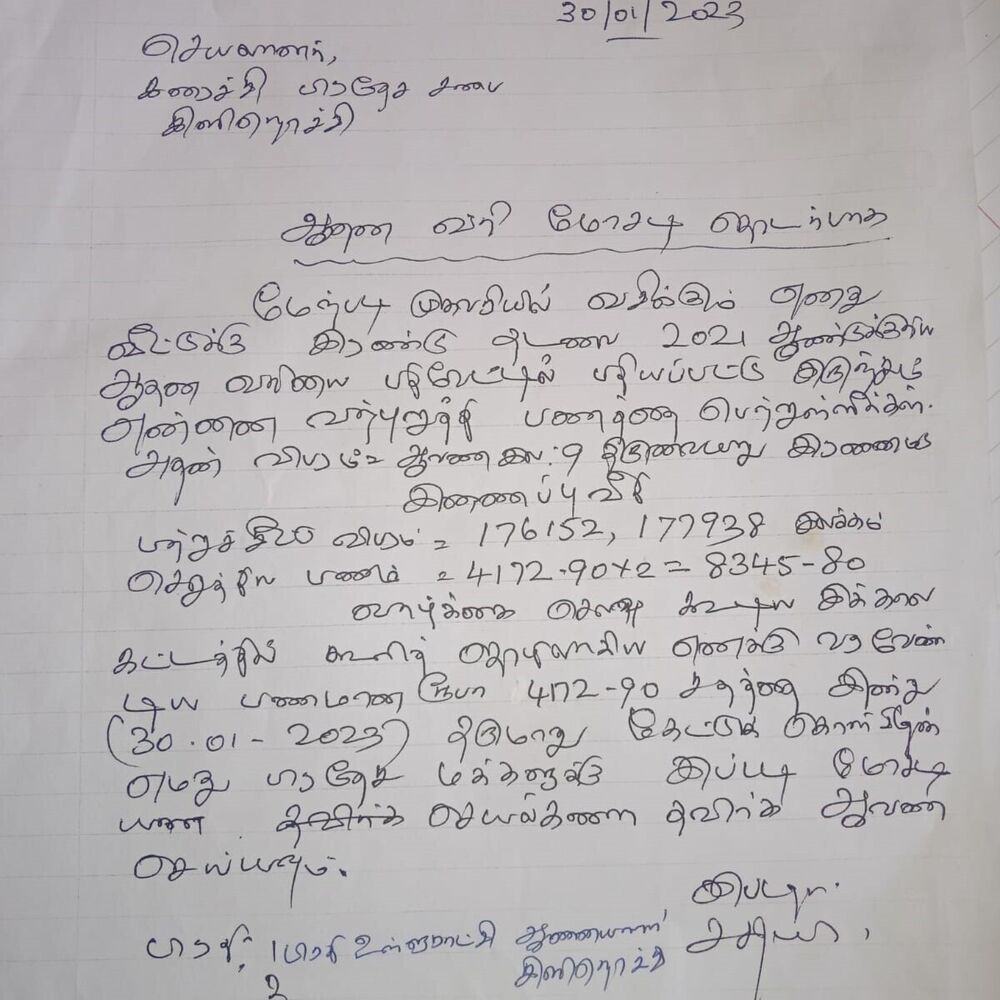 30/01/2023
செயலாளர்,
கரைச்சி பிரதேச சபை
கிளிநொச்சி
ஆதன வரி மோசடி தொடர்பாக
மேற்படி முகவரியில் வசிக்கும் எனது
வீட்டுக்கு இரண்டு தடவை 2021 ஆண்டுக்குரிய
ஆதன வரியை பதிவேட்டில் பதியப்பட்டு இருந்தும்
என்னை வற்புறுத்தி பணத்தை பெற்றுள்ளீர்கள்.
அதன் விபரம்= ஆவண இல:9 திருவையாறு இரணைமடு
இணைப்பு வீதி
பற்றுச்சீட்டு விபரம் = 176152, 177938 இலக்கம்
செலுத்திய பணம் = 4172.90x2= 8345-80
வாழ்க்கை செலவு கூடிய இக் கால
கட்டத்தில் கூலித் தொழிலாளியாகிய எனக்கு வர வேண்
டிய பணமான ரூபா 4172-90 சதத்தை இன்று
(30.01-2023) தருமாறு கேட்டுக் கொள்கிறேன்
எமது பிரதேச மக்களுக்கு இப்படி மோசடி
யான செயல்களை தவிர்க்க ஆவண
செய்யவும்.
இப்படி.
பிரதி: 1 பிரதி உள்ளூராட்சி ஆணையாளர்
கிளிநொச்சி
2